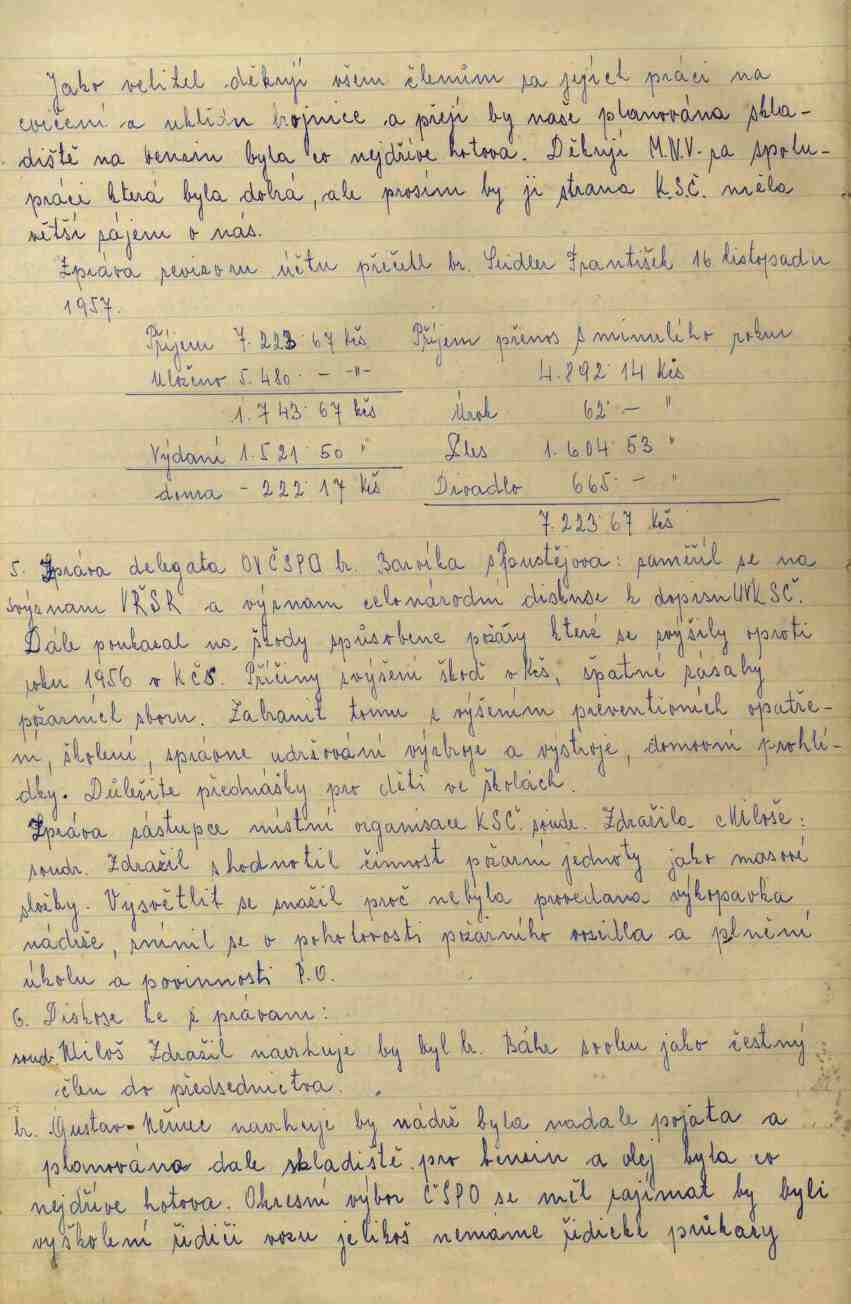 Jako velitel děkuji všem členům za jejich práci na
cvičení a uklidn brojnice a přeji by naše planována skla-
diště na bensin byla co nejdříve hotova. Děkuji M.N.V. za spolu-
práci která byla dobrá, ale prosím by ji strana K.S.Č. měla
větší zájem o nás.
Zpráva revisoru účtu přečetl br. Seidler František 16 listopadu
1957.
Příjem 7.223 67 Kčs Příjem přenos z minulého roku
Uloženo 5.480 - -"- 4.892 14 Kčs
1.743 67 Kčs Úrok 62 - "
Výdaní 1.521 50 " Ples 1.604 53 "
doma - 222 17 Kčs Divadlo 665 - "
7.223 67 Kčs
5. Zpráva delegata OVČSPO br. Barvíka z Pustějova: zaměřil se na
význam VŘSR a význam celonárodní diskuse k dopisu ÚVKSČ.
Dále poukazal na škody způsobene požáry které se zvýšily oproti
roku 1956 v Kčs. Příčiny zvýšení škod v Kčs, špatné zásahy
požarních sboru. Zabranit tomu z výšením preventivních opatře-
ní, školení, správne udržování výzbroje a výstroje, domovní prohlí-
dky. Důležite přednášky pro děti ve školách.
Zpráva zástupce místní organisace KSČ soudr. Zdražila Miloše:
soudr. Zdražil zhodnotil činnost požární jednoty jako masové
složky. Vysvětlit se snažil proč nebyla provedana výkopavka
nádrže, zmínil se o pohotovosti požárního vozidla a plnění
úkolu a povinnosti P.O.
6. Diskose ke z právam:
soudr. Miloš Zdražil navrhuje by byl br. Báhr zvolen jako čestný
člen do předsednictva.
br. Gustav Němec navrhuje by nádrž byla nadale pojata a
planována dale skladiště pro bensin a olej byla co
nejdříve hotova. Okresní výbor ČSPO se měl zajímat by byli
vyškolení řidiči vozu jelikož nemáme řidické průkazy